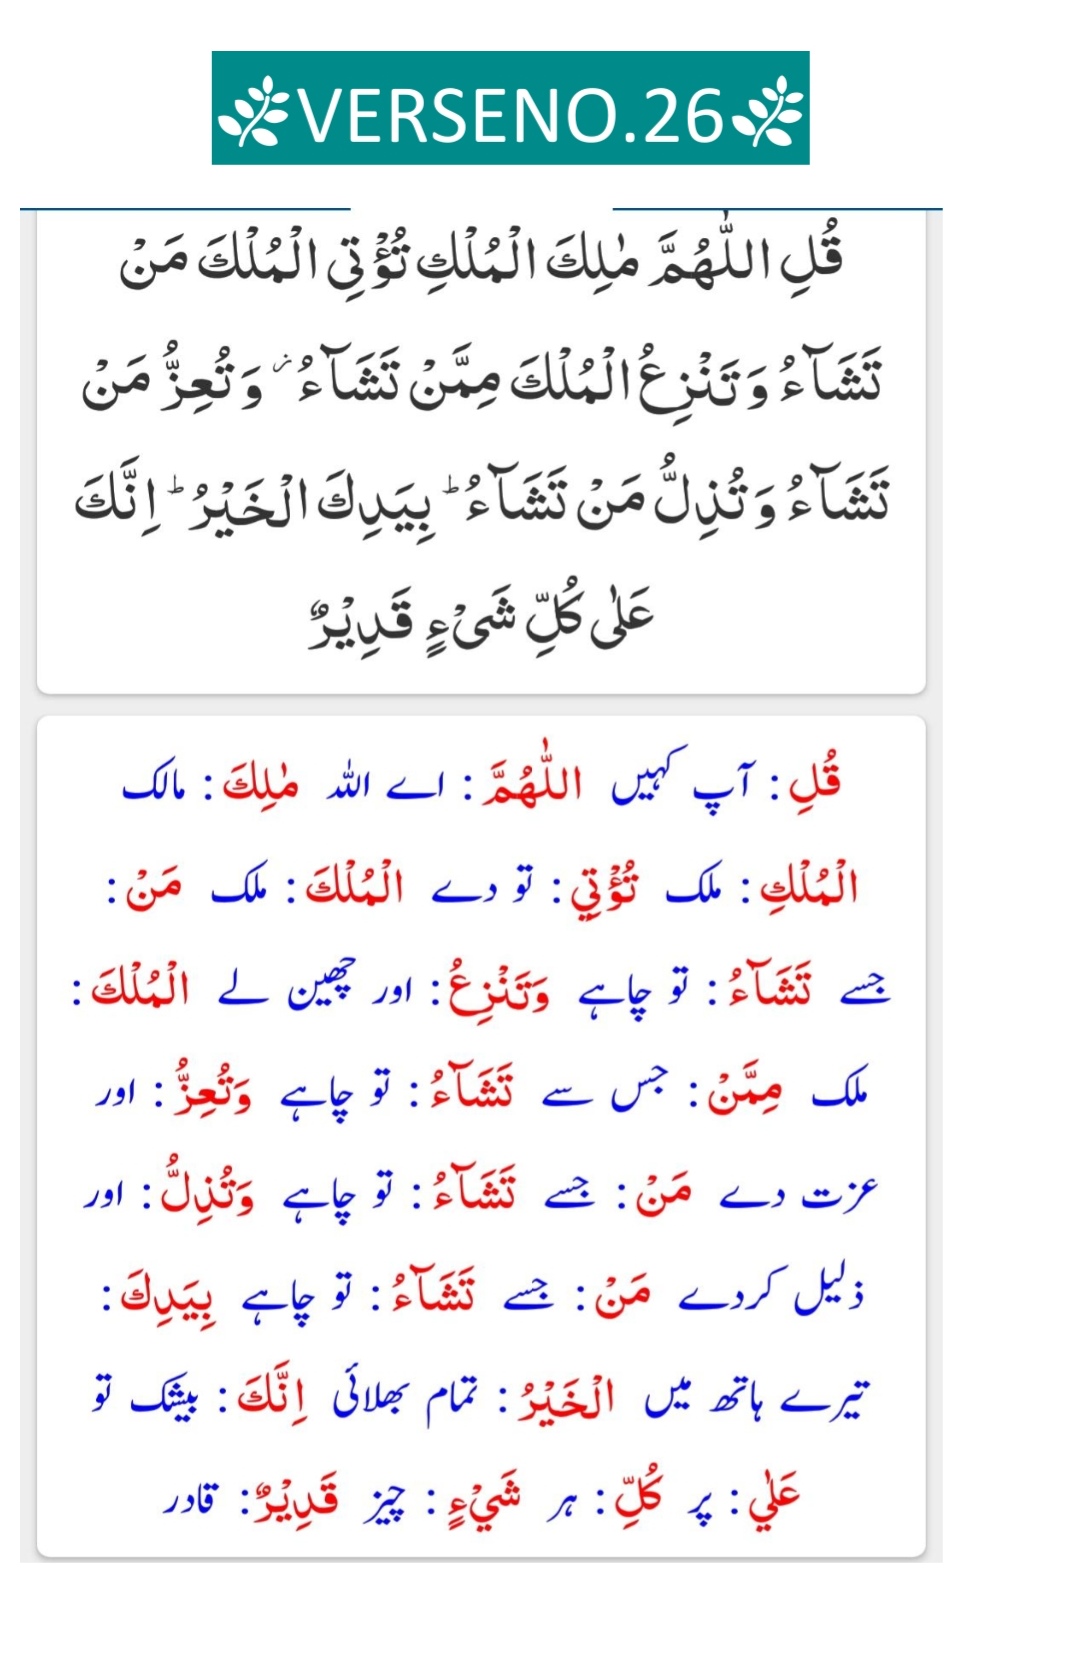 VERSENO.26
قُلِ اللّٰهُمَّ مٰلِكَ الْمُلْكِ تُؤْتِی الْمُلْكَ مَنْ
تَشَآءُ وَ تَنْزِعُ الْمُلْكَ مِمَّنْ تَشَآءُ ؗ وَ تُعِزُّ مَنْ
تَشَآءُ وَ تُذِلُّ مَنْ تَشَآءُ ؕ بِیَدِكَ الْخَیْرُ ؕ اِنَّكَ
عَلٰی كُلِّ شَیْءٍ قَدِیْرٌ
قُلِ : آپ کہیں اللّٰهُمَّ : اے اللہ مٰلِكَ : مالک
الْمُلْكِ : ملک تُؤْتِي : تو دے الْمُلْكَ : ملک مَنْ :
جسے تَشَآءُ : تو چاہے وَتَنْزِعُ : اور چھین لے الْمُلْكَ :
ملک مِمَّنْ : جس سے تَشَآءُ : تو چاہے وَتُعِزُّ : اور
عزت دے مَنْ : جسے تَشَآءُ : تو چاہے وَتُذِلُّ : اور
ذلیل کردے مَنْ : جسے تَشَآءُ : تو چاہے بِيَدِكَ :
تیرے ہاتھ میں الْخَيْرُ : تمام بھلائی اِنَّكَ : بیشک تو
عَلٰي : پر كُلِّ : ہر شَيْءٍ : چیز قَدِيْرٌ : قادر